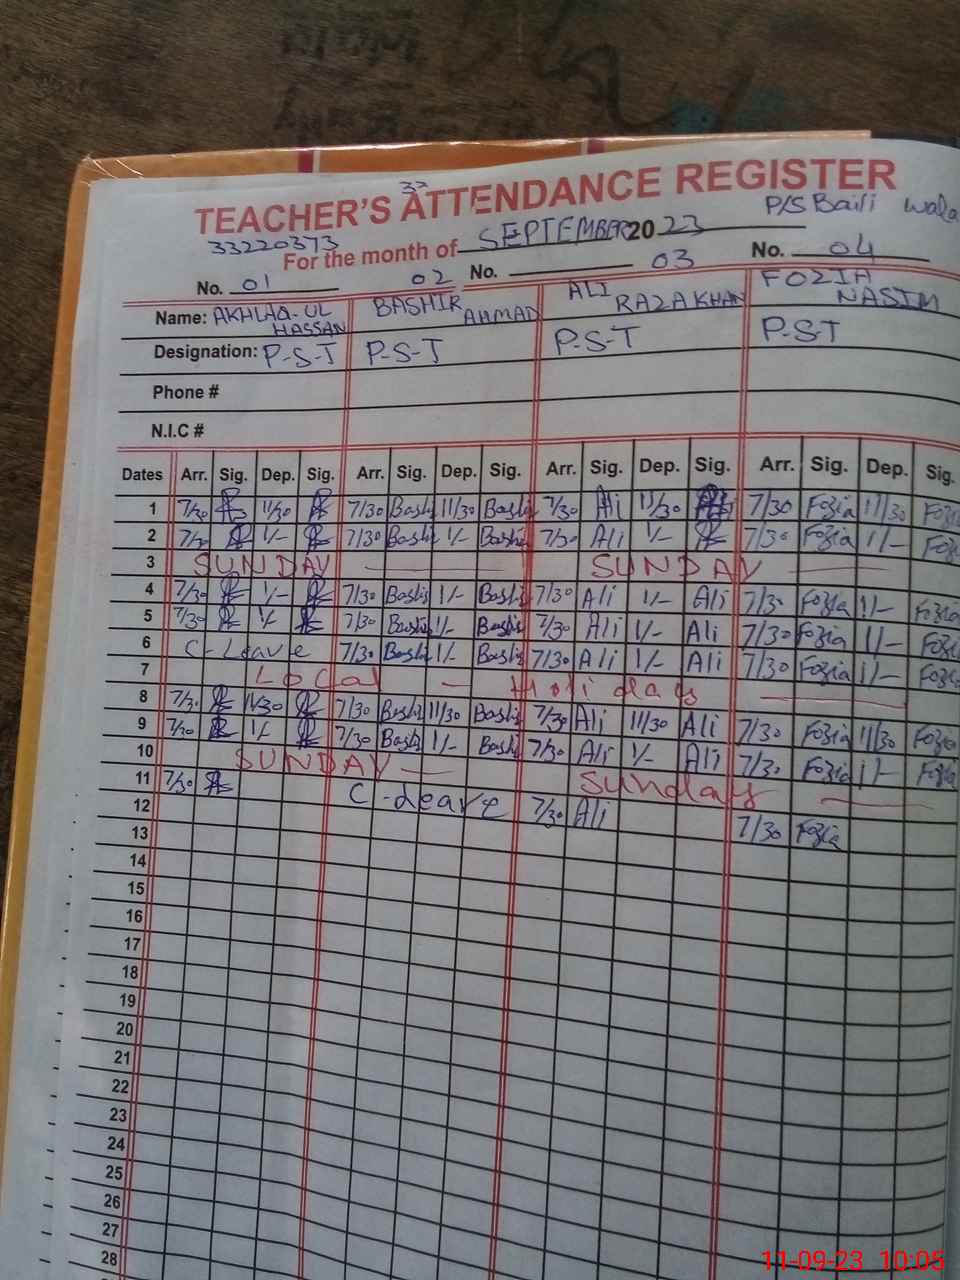 TEACHER'S ATTENDANCE REGISTER
P/S Baili Wala
33220373
For the month of SEPTEMBER 2023
No. 01 02 No. 03 No. 04
Name: AKHLAQ-UL HASSAN BASHIR AHMAD ALI RAZA KHAN FOZIA NASIM
Designation: P-S-T P-S-T P-S-T P-S-T
Phone #
N.I.C #
Dates Arr. Sig. Dep. Sig. Arr. Sig. Dep. Sig. Arr. Sig. Dep. Sig. Arr. Sig. Dep. Sig.
1 7/30 11/30 7/30 Bashir 11/30 Bashir 7/30 Ali 11/30 7/30 Fozia 11/30 Fozia
2 7/30 1/- 7/30 Bashir 1/- Bashir 7/30 Ali 1/- 7/30 Fozia 1/- Fozia
3 SUNDAY SUNDAY
4 7/30 1/- 7/30 Bashir 1/- Bashir 7/30 Ali 1/- Ali 7/30 Fozia 1/- Fozia
5 7/30 1/- 7/30 Bashir 1/- Bashir 7/30 Ali 1/- Ali 7/30 Fozia 1/- Fozia
6 C-Leave 7/30 Bashir 1/- Bashir 7/30 Ali 1/- Ali 7/30 Fozia 1/- Fozia
7 Local - Holiday
8 7/30 11/30 7/30 Bashir 11/30 Bashir 7/30 Ali 11/30 Ali 7/30 Fozia 11/30 Fozia
9 7/30 1/- 7/30 Bashir 1/- Bashir 7/30 Ali 1/- Ali 7/30 Fozia 1/- Fozia
10 SUNDAY Sunday
11 7/30 C-Leave 7/30 Ali 7/30 Fozia
12
13
14
15
16
17
18
19
20
21
22
23
24
25
26
27
28
11-09-23 10:05